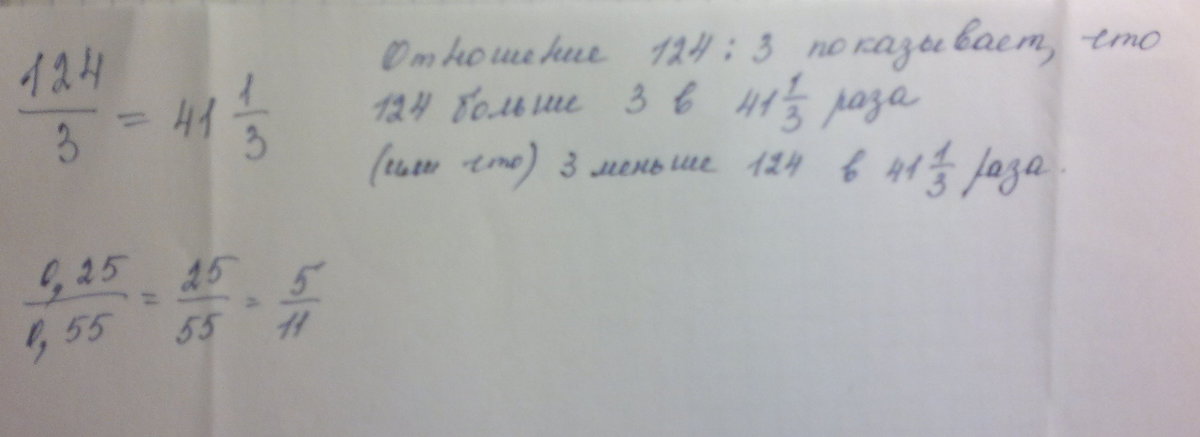 124/3 = 41 1/3
Отношение 124 : 3 показывает, что
124 больше 3 в 41 1/3 раза
(или что) 3 меньше 124 в 41 1/3 раза.
0,25/0,55 = 25/55 = 5/11